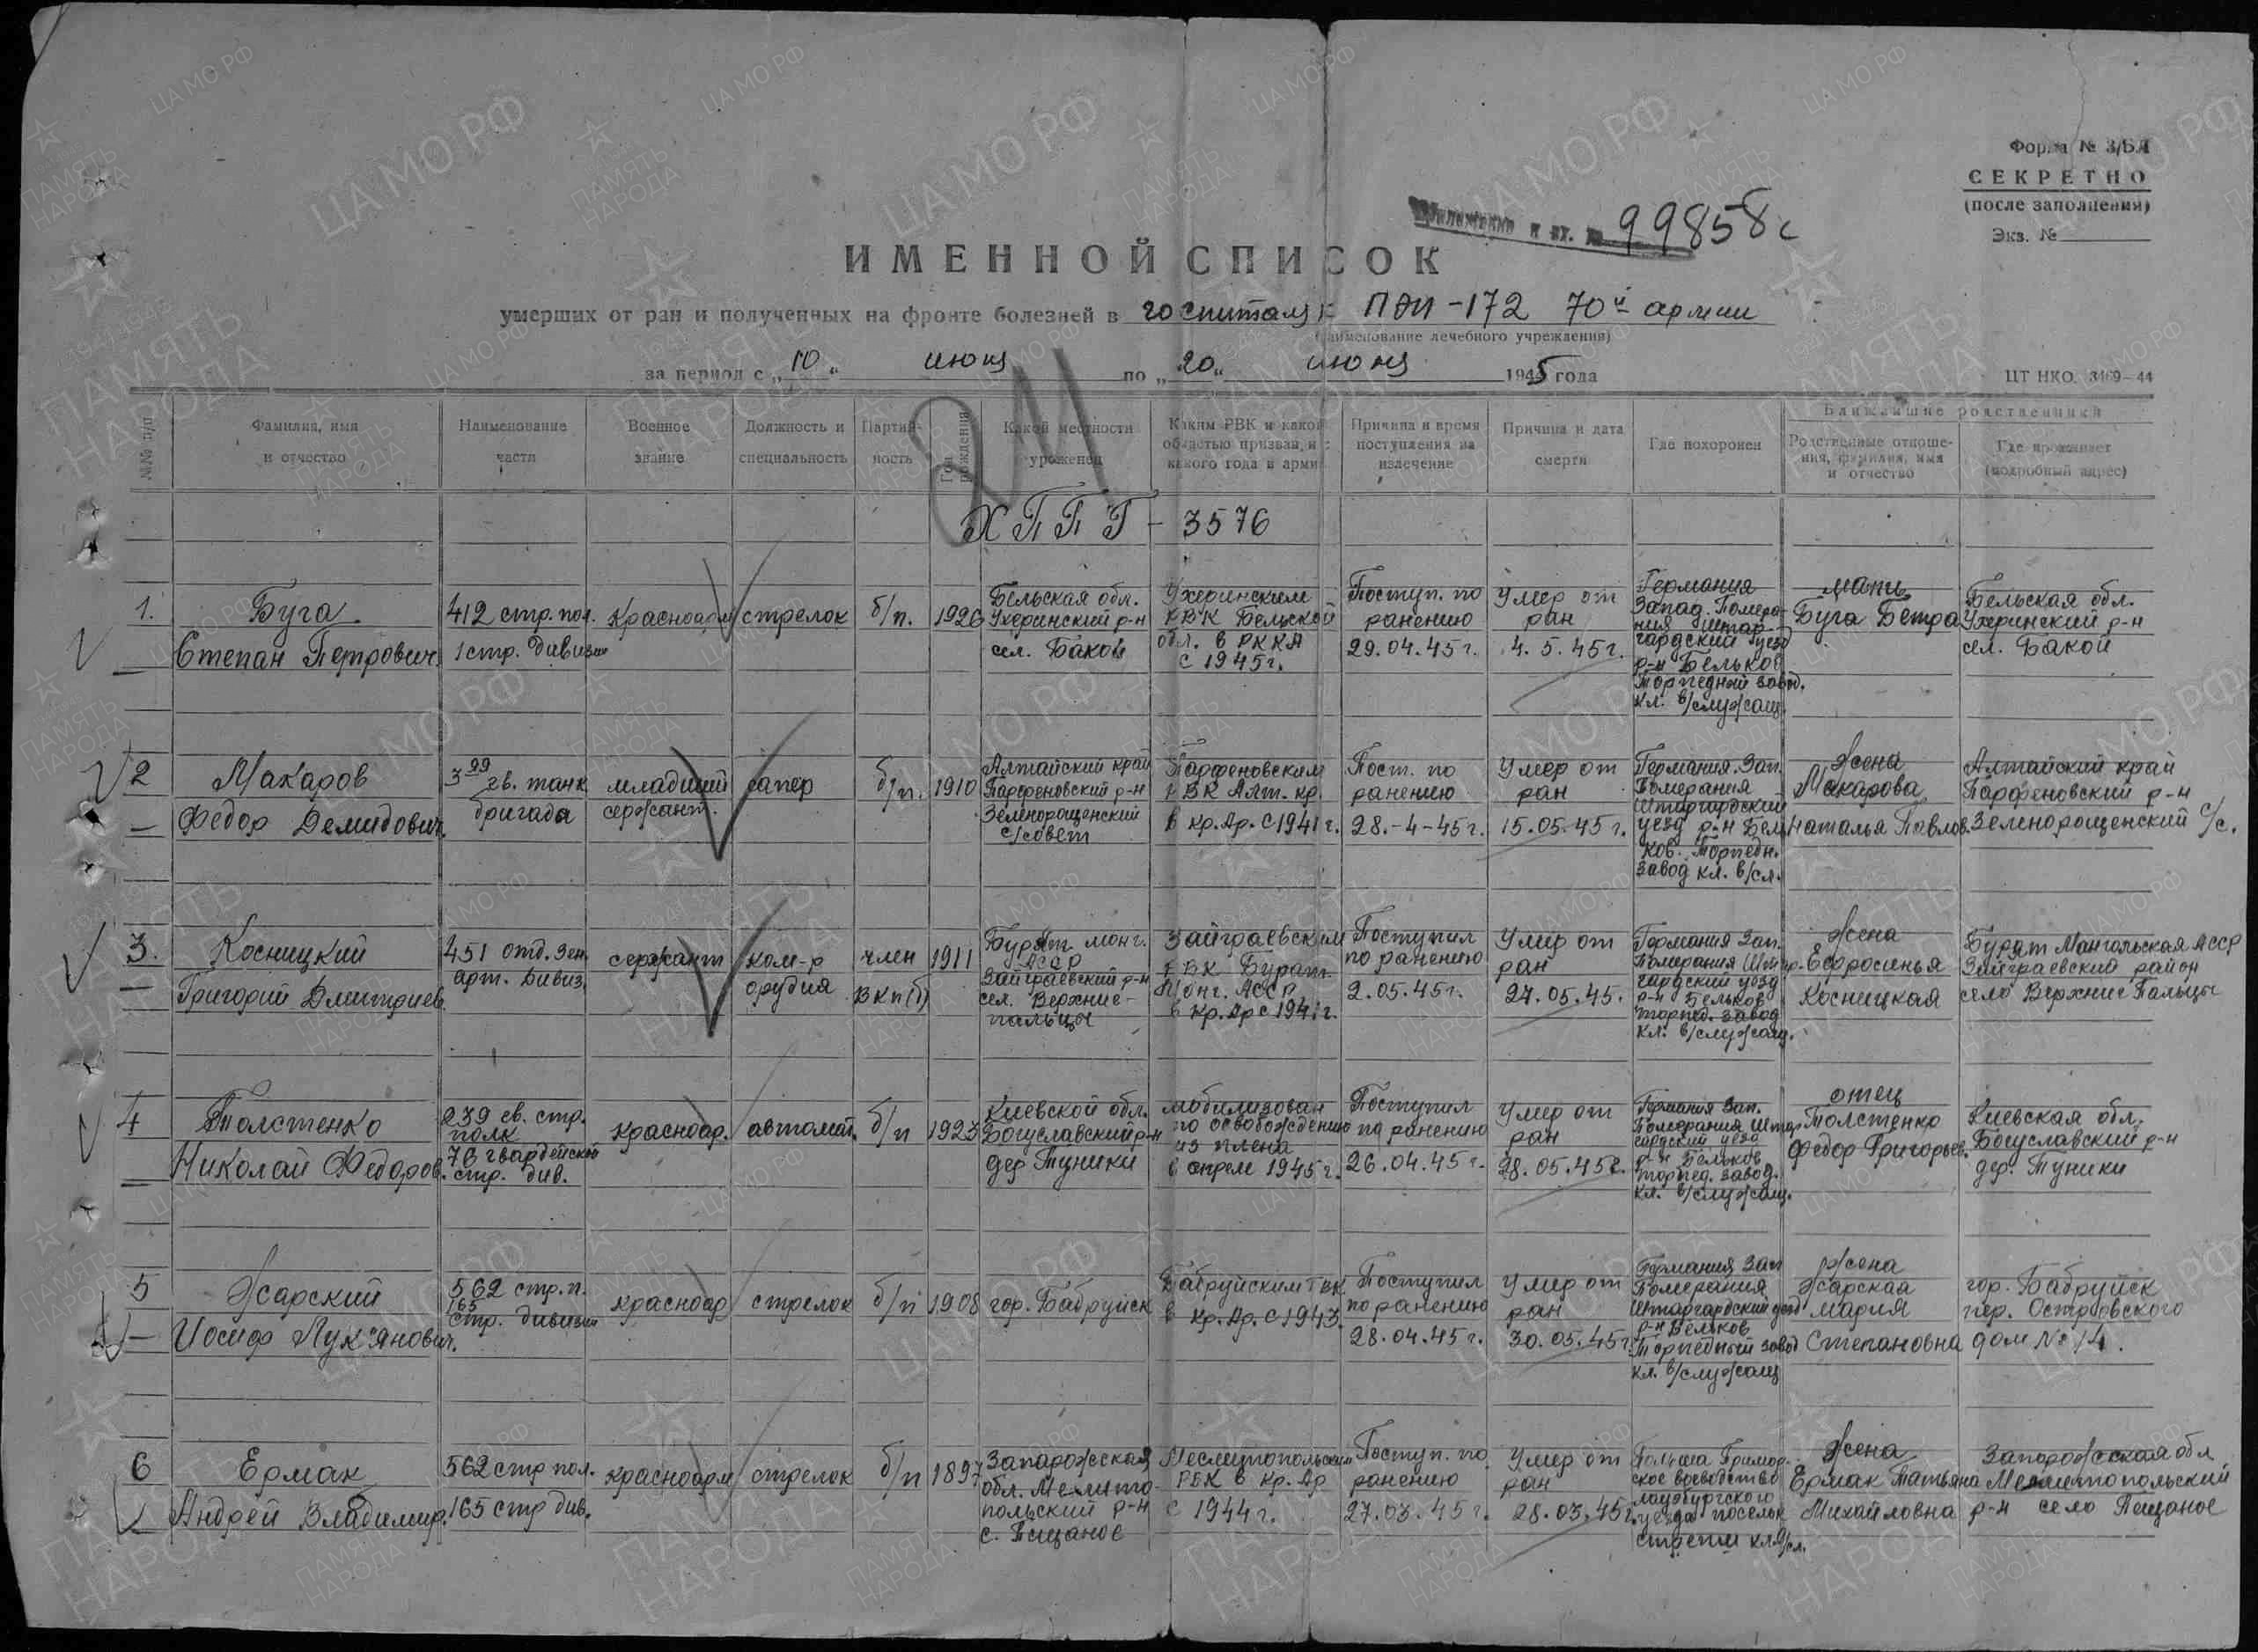 Форма № 3/БЛ
СЕКРЕТНО
(после заполнения)
Экз. №
вх. № 99858с
ИМЕННОЙ СПИСОК
умерших от ран и полученных на фронте болезней в госпиталях ПЭП-172 70й армии
(наименование лечебного учреждения)
за период с „10“ июня по „20“ июня 1945 года
ЦТ НКО. 3469-44
№№ п/п
Фамилия, имя
и отчество
Наименование
части
Военное
звание
Должность и
специальность
Партий-
ность
Год рождения
Какой местности
уроженец
Каким РВК и какой
областью призван и с
какого года в армии
Причина и время
поступления на
излечение
Причина и дата
смерти
Где похоронен
Ближайшие родственники
Родственные отноше-
ния, фамилия, имя
и отчество
Где проживает
(подробный адрес)
ХППГ - 3576
1.
Буга
Степан Петрович
412 стр. пол.
1 стр. дивизии
Красноарм
стрелок
б/п.
1926
Бельская обл.
Ухеринский р-н
сел. Баков
Ухеринским
РВК Бельской
обл. в РККА
с 1945г.
Поступ. по
ранению
29.04.45г.
Умер от
ран
4.5.45г.
Германия
Запад. Помера-
ния Штар-
гардский уезд
р-н Бельков
Торпедный завод.
кл. в/служащ.
мать
Буга Петра
Бельская обл.
Ухеринский р-н
сел. Бакой
2
Макаров
Федор Демидович.
гв. танк.
бригада
младший
сержант.
сапер
б/п.
1910
Алтайский край
Парфеновский р-н
Зеленорощенский
с/совет
Парфеновским
РВК Алт. кр.
в Кр. Ар. с 1941г.
Пост. по
ранению
28.-4-45г.
Умер от
ран
15.05.45г.
Германия. Зап.
Померания
Штаргардский
уезд р-н Бель
ков. Торпедн.
завод кл. в/сл.
Жена
Макарова
Наталья Павлов.
Алтайский край
Парфеновский р-н
Зеленорощенский с/с.
3.
Косницкий
Григорий Дмитриев.
451 отд. зен.
арт. дивиз.
сержант
ком-р
орудия
член
ВКП(б)
1911
Бурят монг.
АССР
Зайграевский р-н
сел. Верхние-
пальцы
Зайграевским
РВК Бурят.
Монг. АССР
в Кр. Ар с 1941г.
Поступил
по ранению
2.05.45г.
Умер от
ран
27.05.45.
Германия Зап.
Померания Штар-
гардский уезд
р-н Бельков
торпед. завод
кл. в/служащ.
Жена
Ефросинья
Косницкая
Бурят Монгольская АССР
Зайграевский район
село Верхние Пальцы
4
Толстенко
Николай Федоров.
239 гв. стр.
полк
76 гвардейской
стр. див.
красноар.
автомат.
б/п
1923
Киевской обл.
Богуславский р-н
дер Туники
мобилизован
по освобождению
из плена
в апреле 1945г.
Поступил
по ранению
26.04.45г.
Умер от
ран
28.05.45г.
Германия Зап.
Померания Штар
гардский уезд
р-н Бельков
торпед. завод.
кл. в/служащ.
отец
Толстенко
Федор Григорьев.
Киевская обл.
Богуславский р-н
дер. Туники
5
Жарский
Иосиф Лук'янович.
562 стр. п.
165
стр. дивизии
красноар
стрелок
б/п
1908
гор. Бабруйск
Бабруйским ГВК
в Кр. Ар. с 1943.
Поступил
по ранению
28.04.45г.
Умер от
ран
30.05.45г.
Германия Зап
Померания
Штаргардский уезд
р-н Бельков
Торпедный завод
кл. в/служащ
Жена
Жарская
Мария
Степановна
гор. Бабруйск
пер. Островского
дом № 14.
6
Ермак
Андрей Владимир.
562 стр пол.
165 стр див.
красноарм
стрелок
б/п
1897
Запарожская
обл. Мелито-
польский р-н
с. Пещаное
Мелитопольским
РВК в Кр. Ар
с 1944г.
Поступ. по
ранению
27.03.45г.
Умер от
ран
28.03.45г.
Польша Примор-
ское воеводство
уезда поселок
кл. в/сл.
Жена
Ермак Татьяна
Михайловна
Запарожская обл
Мелитопольский
р-н село Пещаное